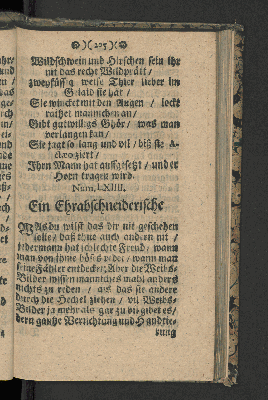 )( 205 )(
Wildschwein und Hirschen sein ihr
nit das recht Wildprätt /
zweyfüssig weise Thier lieber im
Gejaid sie hat /
Sie wincket mit den Augen / lockt
rathet manninchen an /
Gibt gutwilligs Ghör / was man
verlangen kan /
Sie jagt so lang und vil / biß sie
Ihrn Mann hat auffgesetzt / und er
Horn tragen wird.
Num. LXIIII.
Ein Ehrabschneiderische
WAs du wilst das dir nit geschehen
solle / daß thue auch andern nit /
jederman hat schlechte Freud / wann
man von ihne böses redet / wann man
seine Fähler entdecket; Aber die Weibs-
Bilder wissen mannichesmahl anders
nichts zu reden / als das sie andere
durch die Hechel ziehen / vil Weibs-
Bilder ja mehr als gar zu vil gibet es /
deren gantze Verrichtung und Handtie-
rung